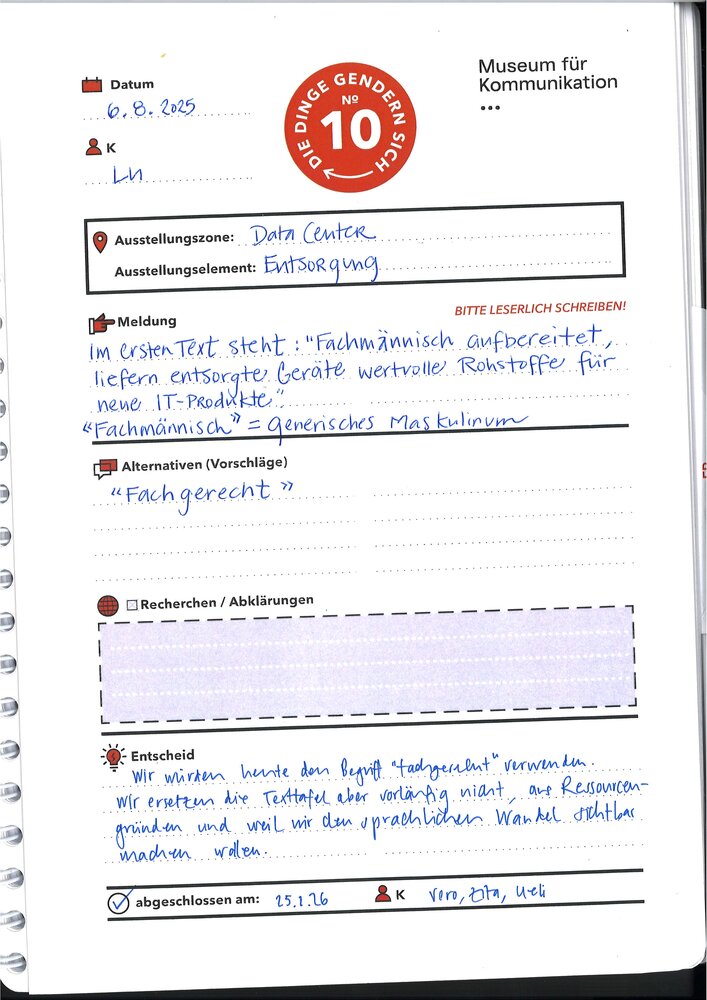 Museum für
Kommunikation
Datum
6.8.2025
DIE DINGE GENDERN SICH
Nº
10
K
LH
Ausstellungszone: Data Center
Ausstellungselement: Entsorgung
BITTE LESERLICH SCHREIBEN!
Meldung
Im ersten Text steht: "Fachmännisch aufbereitet,
liefern entsorgte Geräte wertvolle Rohstoffe für
neue IT-Produkte".
"Fachmännisch" = generisches Maskulinum
Alternativen (Vorschläge)
"Fachgerecht"
Recherchen / Abklärungen
Entscheid
Wir würden heute den Begriff "fachgerecht" verwenden.
Wir ersetzen die Texttafel aber vorläufig nicht, aus Ressourcen-
gründen und weil wir den sprachlichen Wandel sichtbar
machen wollen.
abgeschlossen am: 25.1.26 K Vero, Zita, Ueli